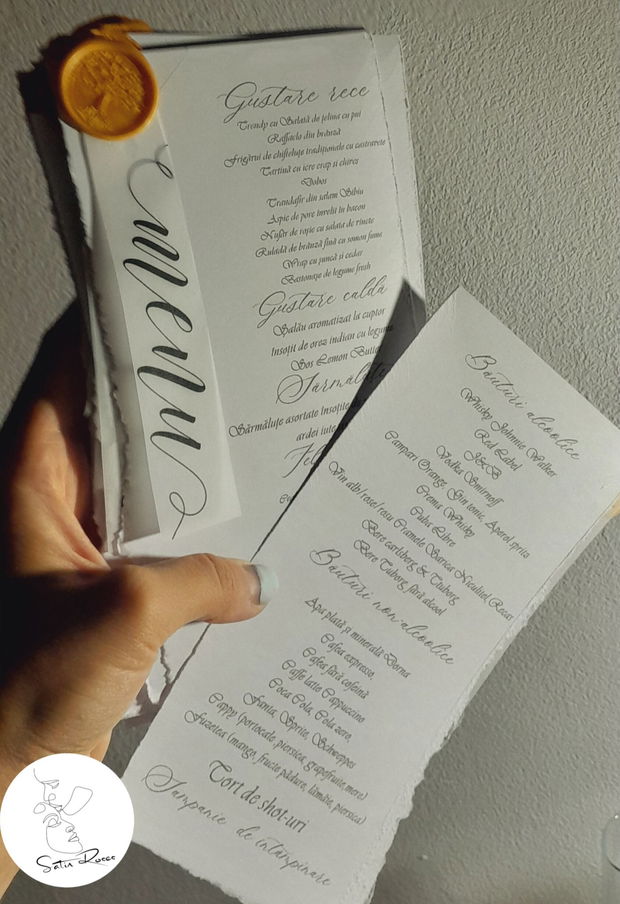 menu
Gustare rece
Trendy cu Salată de țelina cu pui
Raffaelo din brânză
Frigărui de chifteluțe tradiționale cu castravete
Tartină cu icre crap si chives
Dobos
Trandafir din salam Sibiu
Aspic de porc învelit în bacon
Nufăr de roșie cu salata de vinete
Ruladă de brânză fină cu somon fume
Wrap cu șuncă si cedar
Bastonașe de legume fresh
Gustare caldă
Șalău aromatizat la cuptor
însoțit de orez indian cu legume
Sos Lemon Butter
Sărmăluțe
Sărmăluțe asortate însoțite
ardei iute
Fel
Băuturi alcoolice
Whisky Johnnie Walker
Red Label
J&B
Vodka Smirnoff
Campari Orange, Gin tonic, Aperol spritz
Crema Whisky
Cuba Libre
Vin alb/rose/rosu Cramele Sarica Niculitel (Rezar
Bere carlsberg & Ttuborg
Bere Tuborg fără alcool
Băuturi non-alcoolice
Apa plată și minerală Dorna
Cafea expresso,
Cafea fără cofeină
Caffe latte Cappuccino
Coca Cola, Cola zero,
Fanta, Sprite, Schweppes
Cappy (portocale, piersica, grapefruite, mere)
Fuzetea (mango, fructe pădure, lămâie, piersica)
Tort de shot-uri
Șampanie de întâmpinare
Satin Rocco